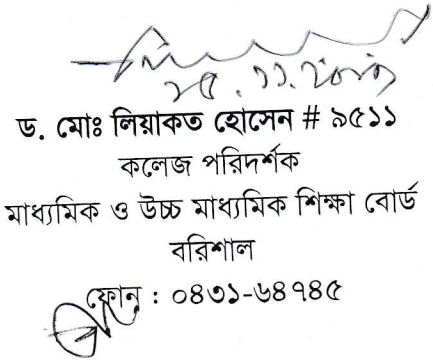 ড. মোঃ লিয়াকত হোসেন # ৯৫১১
কলেজ পরিদর্শক
মাধ্যমিক ও উচ্চ মাধ্যমিক শিক্ষা বোর্ড
বরিশাল
ফোন : ০৪৩১-৬৪৭৪৫